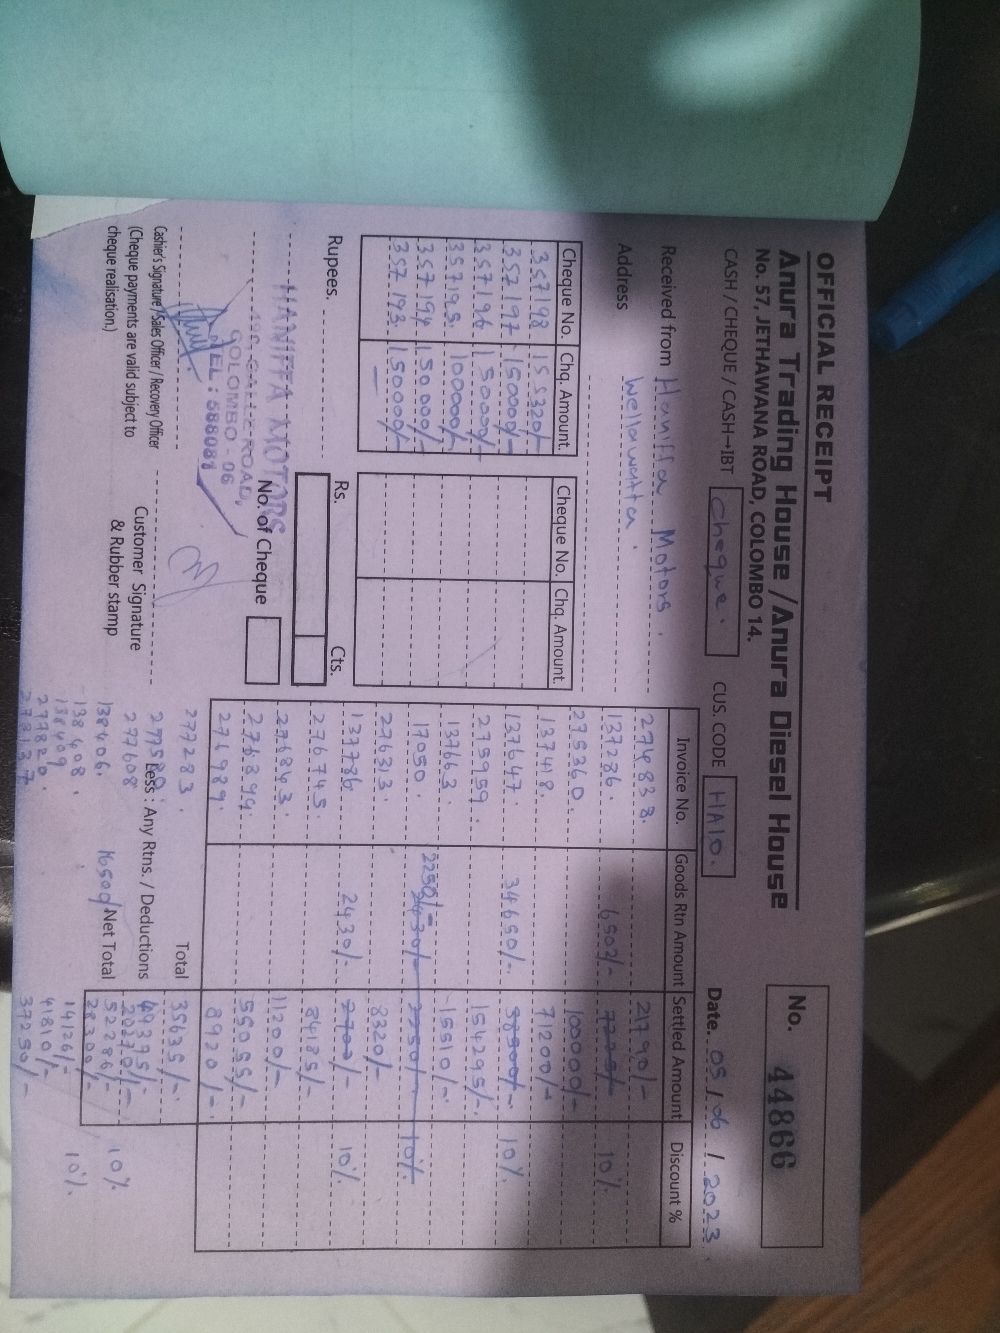 OFFICIAL RECEIPT
Anura Trading House / Anura Diesel House
No. 57, JETHAWANA ROAD, COLOMBO 14.
No. 44866
CASH / CHEQUE / CASH→IBT Cheque. CUS. CODE HA10. Date. 05 / 06 / 2023.
Received from Haniffa Motors.
Address Wellawatta.
Cheque No. Chq. Amount.
357198 155320/-
357197 150000/-
357196 150000/-
357195 100000/-
357194 150000/-
357193 150000/-
Cheque No. Chq. Amount.
Rupees.
Rs. Cts.
No. of Cheque
HANIFFA MOTORS
GALLE ROAD,
COLOMBO - 06
TEL : 588081
Cashier's Signature / Sales Officer / Recovery Officer
(Cheque payments are valid subject to
cheque realisation.)
Customer Signature
& Rubber stamp
Invoice No. Goods Rtn Amount Settled Amount Discount %
274833. 21790/-
137286. 6502/- 10%
275360 100000/-
137418. 71200/-
137647. 34650/-. 10%
275959. 154295/-
137663. 15510/-
17050. 2250/- 10%
276313. 8320/-
137786 2430/- 10%
276745. 84185/-
276843. 11200/-
276899. 55055/-
276989. 8920/-
277283. Total 35635/-
Less : Any Rtns. / Deductions 49395/-
277608
138406. Net Total 52286/- 10%
138408. 14126/- 10%
138409 41810/-
277820. 37250/-